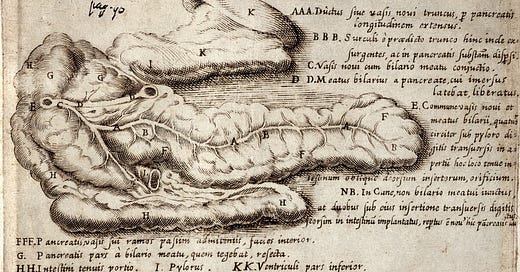 pag. 90
AAA. Ductus siue vasis noui truncus, p pancreatis
longitudinem extensus.
BBB. Surculi è prædicto trunco hinc inde ex=
surgentes, ac in pancreatis substam dispsi.
C. Vasis noui cum bilario meatu coniuctio.
D D. Meatus bilarius a pancreate, cui imersus
latebat, liberatus.
E. Commune vasis noui et
meatus bilarij, quatuor
circitor sub pyloro di=
gitis transuersis in a=
perti hoc loco
intestinum oblique dictorum insertorum, orificium.
NB. In Cane, non bilario meatui iunctus,
at duobus sub eius insertione transuersis digitis
in intestinũ implantatus, reptus
FFF. Pancreatis, vasis sui ramos passim admittentis, facies interior.
G. Pancreatis pars a bilario meatu, quem tegebat, resecta.
HH. Intestini tenuis portio. I. Pylorus. KK. Ventriculi pars inferior.
K
K
I
H
G
G
H
E
D
C
A
B
A
B
B
A
F
F
F
E
H
H
H